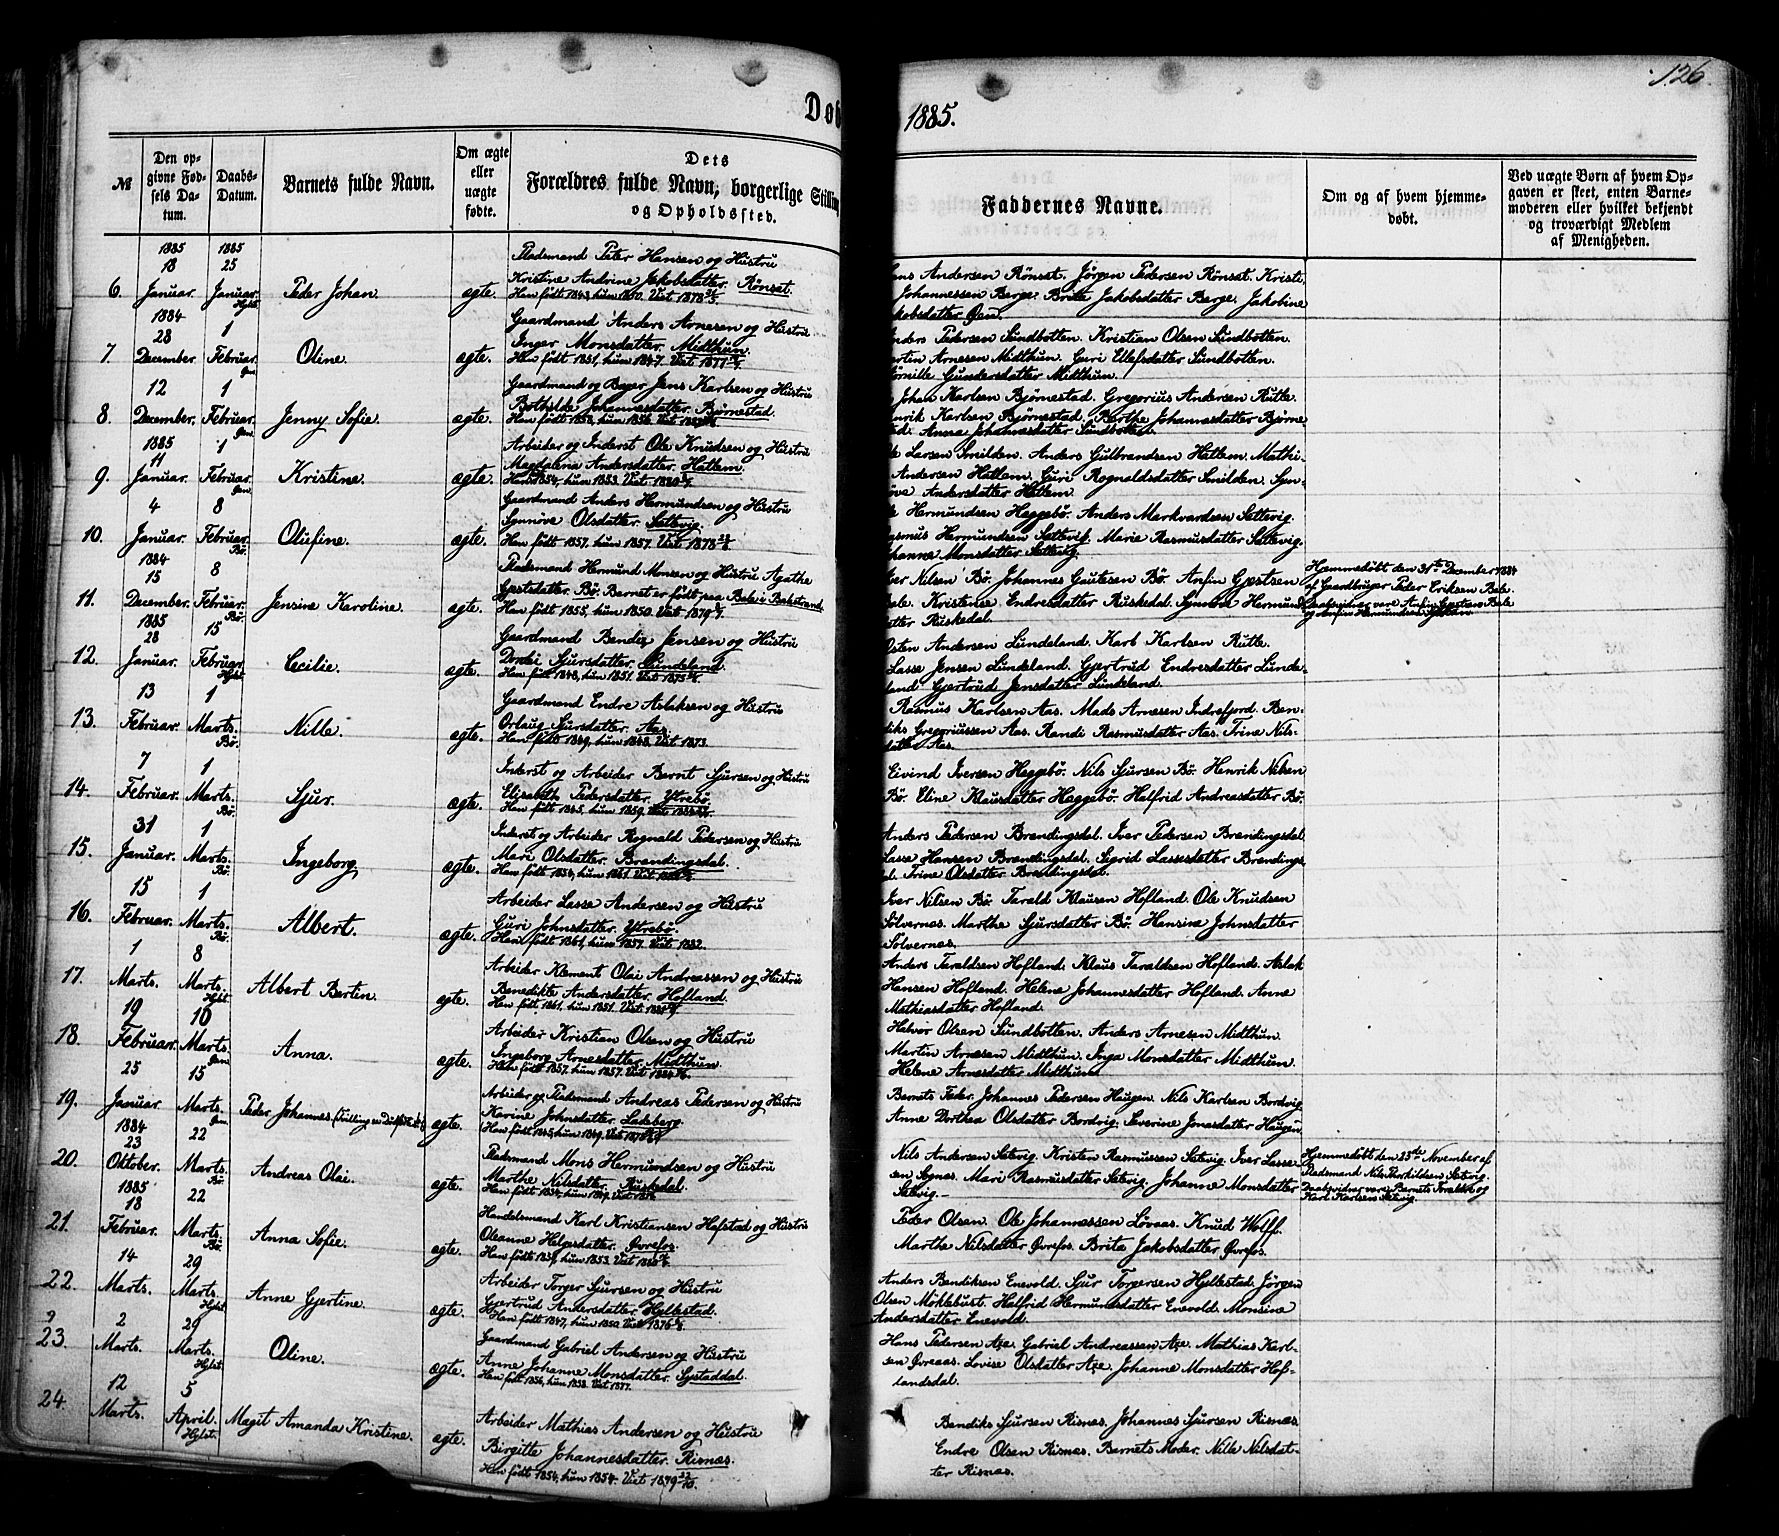 Døb
1885.
126
№
Den opgivne Fødsels Datum.
Daabs-Datum.
Barnets fulde Navn.
Om ægte eller uægte fødte.
Dets Forældres fulde Navn, borgerlige Stilling og Opholdssted.
Faddernes Navne.
Om og af hvem hjemmedøbt.
Ved uægte Børn af hvem Opgaven er skeet, enten Barnemoderen eller hvilket bekjendt og troværdigt Medlem af Menigheden.
6. 1885 18 Januar. 1885 25 Januar. Hylst. Peder Johan. ægte. Pladsmand Peter Hansen og Hustru
Kristine Andrine Jakobsdatter. Rønset.
Han født 1843, hun 1850. Viet 1878
Andersen Rønset. Jørgen Pedersen Rønset. Kristi
Johannessen Berge. Brita Jakobsdatter Berge. Jakobine
7. 1884 28 December. 1 Februar. Oline. ægte. Gaardmand Anders Arnesen og Hustru
Inger Monsdatter. Midthun.
Han født 1851, hun 1847. Viet 1877
Pedersen Sundbotten. Kristian Olsen Sundbotten.
Arnesen Midthun. Guri Ellefsdatter Sundbotten.
Gundersdatter Midthun.
8. 12 December. 1 Februar. Jenny Sofie. ægte. Gaardmand og Bager Jens Karlsen og Hustru
Bothilde Johannesdatter. Bjørnestad.
Johan Karlsen Bjørnestad. Gregorius Andersen Rutle.
Karlsen Bjørnestad. Berthe Johannesdatter Bjørne
Anna Johannesdatter Sundbotten.
9. 1885 11 Januar. 1 Februar. Kristine. ægte. Arbeider og Inderst Ole Knudsen og Hustru
Magdalena Andersdatter. Hatlem.
Han f. 1854, hun 1853. Viet 1880
Larsen Smilden. Anders Gulbrandsen Hatlem. Mathi-
Andersen Hatlem. Guri Rognaldsdatter Smilden. Syn-
Andersdatter Hatlem.
10. 4 Januar. 8 Februar. Bø. Olufine. ægte. Gaardmand Anders Hermundsen og Hustru
Synnøve Olsdatter. Settevig.
Han født 1857, hun 1857. Viet 1878
Hermundsen Heggebø. Anders Markvardsen Settevig.
Hermundsen Settevig. Marie Rasmusdatter Settevig.
Monsdatter Settevig.
11. 1884 15 December. 8 Februar. Bø. Jensine Karoline. ægte. Pladsmand Hermund Monsen og Hustru Agathe
Gjestsdatter. Bø. Barnet er født paa Bale i Balestrand.
Han født 1855, hun 1850. Viet 1879
Nilsen Bø. Johannes Gautesen Bø. Anfin Gjestsen
Bale. Kristense Endresdatter Ruskedal. Synneva Hermunds
Ruskedal.
Hjemmedøbt den 31te December 1884
af Gaardbruger Peder Eriksen Bale.
Daabsvidner vare Anfin Gjestsen Bale
12. 1885 28 Januar. 15 Februar. Hylst. Cecilie. ægte. Gaardmand Bendix Jensen og Hustru
Dordei Sjursdatter. Lundeland.
Han født 1848, hun 1851. Viet 1875
Andersen Lundeland. Karl Karlsen Rutle.
Lasse Jensen Lundeland. Gjertrud Endresdatter Lunde-
land. Gjertrud Jensdatter Lundeland.
13. 13 Februar. 1 Marts. Bø. Nille. ægte. Gaardmand Endre Aslaksen og Hustru
Orlaug Sjursdatter. Aas.
Han født 1849, hun 1848. Viet 1873.
Rasmus Karlsen Aas. Mads Arnesen Indrefjord. Ben-
diks Gregoriussen Aas. Randi Rasmusdatter Aas. Trine Nils-
datter Aas.
14. 7 Februar. 1 Marts. Bø. Sjur. ægte. Inderst og Arbeider Bernt Sjursen og Hustru
Elisabeth Pedersdatter. Ytrebø.
Eivind Iversen Heggebø. Nils Sjursen Bø. Henrik Nilsen
Bø. Eline Klausdatter Heggebø. Halfrid Andreasdatter Bø.
15. 31 Januar. 1 Marts. Bø. Ingeborg. ægte. Inderst og Arbeider Rognald Pedersen og Hustru
Mari Olsdatter. Brendingsdal.
Anders Pedersen Brendingsdal. Iver Pedersen Brendingsdal.
Lasse Hansen Brendingsdal. Sigrid Lassesdatter Brendings-
dal. Trine Olsdatter Brendingsdal.
16. 15 Februar. 1 Marts. Bø. Albert. ægte. Arbeider Lasse Andersen og Hustru
Guri Johnsdatter. Ytrebø.
Han født 1861, hun 1857. Viet 1882.
Iver Nilsen Bø. Tarald Klausen Hofland. Ole Knudsen
Solvernes. Marthe Sjursdatter Bø. Hansine Johnsdatter
Solvernes.
17. 1 Marts. 8 Marts. Hylst. Albert Bertin. ægte. Arbeider Klement Olai Andreassen og Hustru
Benedikte Andersdatter. Hofland.
Anders Taraldsen Hofland. Klaus Taraldsen Hofland. Aslak
Hansen Hofland. Helene Johannesdatter Hofland. Anne
Mathiasdatter Hofland.
18. 19 Februar. Marts. Anna. ægte. Arbeider Kristian Olsen og Hustru
Ingeborg Arnesdatter. Midthun.
Han født 1857, hun 1857. Viet 1884
Halvor Olsen Sundbotten. Anders Arnesen Midthun.
Martin Arnesen Midthun. Inga Monsdatter Midthun.
Helene Arnesdatter Midthun.
19. 25 Januar. 15 Marts. Peder Johannes (Tvilling) ægte. Arbeider og Pladsmand Andreas Pedersen og Hustru
Karine Johnsdatter. Ladeberg.
Barnets Fader. Johannes Pedersen Haugen. Nils Karlsen Bordvig.
Anne Dorthea Olsdatter Bordvig. Severine Jonasdatter Haugen.
20. 1884 23 Oktober. 22 Marts. Bø. Andreas Olai. ægte. Pladsmand Mons Hermundsen og Hustru
Marthe Nilsdatter. Ruskedal.
Nils Andersen Setevig. Kristen Rasmussen Setevig. Iver Lasse-
sen Sognes. Mari Rasmusdatter Setevig. Johanne Monsdatter
Setevig.
Hjemmedøbt den 23de November af
Pladsmand Nils Thorkildsen Setevig.
Daabsvidner vare Barnets Forældre og
Karl Karlsen Setevig.
21. 1885 18 Februar. 22 Marts. Bø. Anna Sofie. ægte. Handelsmand Karl Kristiansen Hofstad og Hustru
Oleanne Helgesdatter. Øvrefos.
Peder Olsen. Ole Johannessen Løvaas. Knud Wolff.
Marthe Nilsdatter Øvrefos. Brita Jakobsdatter Øvrefos.
22. 14 Marts. 29 Marts. Hylst. Anne Gjertine. ægte. Arbeider Torger Sjursen og Hustru
Gjertrud Andersdatter. Hyllestad.
Han født 1847, hun 1850. Viet 1876
Anders Bendiksen Enevold. Sjur Torgersen Hyllestad. Jørgen
Olsen Møklebust. Halfrid Hermundsdatter Enevold. Monsine
Andersdatter Enevold.
23. 2 Marts. 29 Marts. Hylst. Oline. ægte. Gaardmand Gabriel Andersen og Hustru
Anne Johanne Monsdatter. Systaddal.
Han født 1856, hun 1858. Viet 1877.
Hans Pedersen Axe. Gabriel Andreassen Axe. Mathias Karl-
sen Øvreaas. Lovise Olsdatter Axe. Johanne Monsdatter Hof-
landsdal.
24. 12 Marts. 5 April. Hylst. Magit Amanda Kristine. ægte. Arbeider Mathias Andersen og Hustru
Birgitte Johannesdatter. Risnes.
Han født 1854, hun 1854. Viet 1879
Bendiks Sjursen Risnes. Johannes Sjursen Risnes
Endre Olsen Risnes. Barnets Moder. Nille Nilsdat-
ter Risnes.